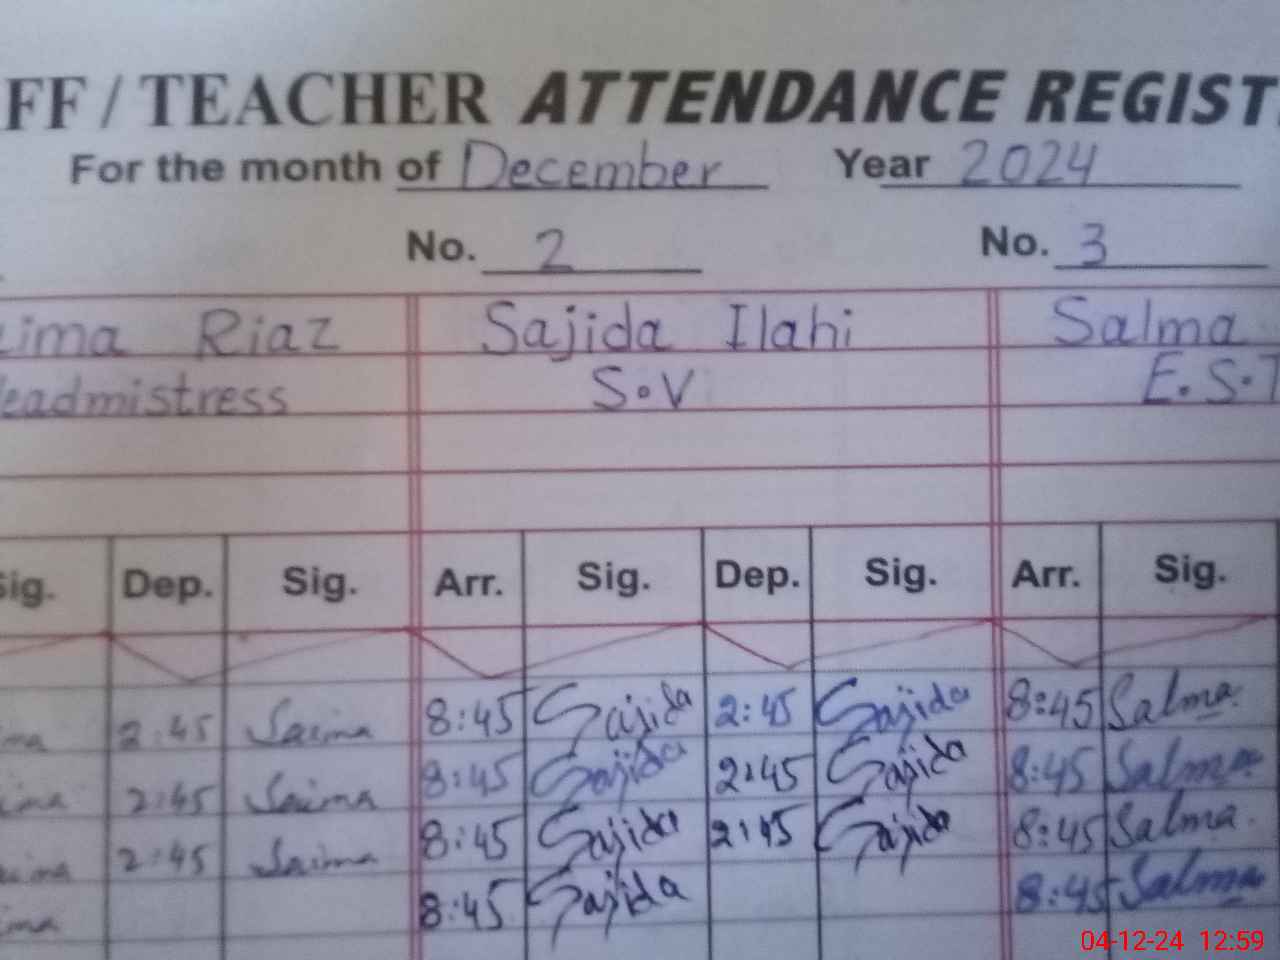 FF / TEACHER ATTENDANCE REGIST
For the month of December Year 2024
No. 2 No. 3
ima Riaz Sajida Ilahi Salma
eadmistress S.V E.S.T
Sig. Dep. Sig. Arr. Sig. Dep. Sig. Arr. Sig.
ma 2:45 Saima 8:45 Sajida 2:45 Sajida 8:45 Salma
ima 2:45 Saima 8:45 Sajida 2:45 Sajida 8:45 Salma
aima 2:45 Saima 8:45 Sajida 2:45 Sajida 8:45 Salma
ima 8:45 Sajida 8:45 Salma
04-12-24 12:59